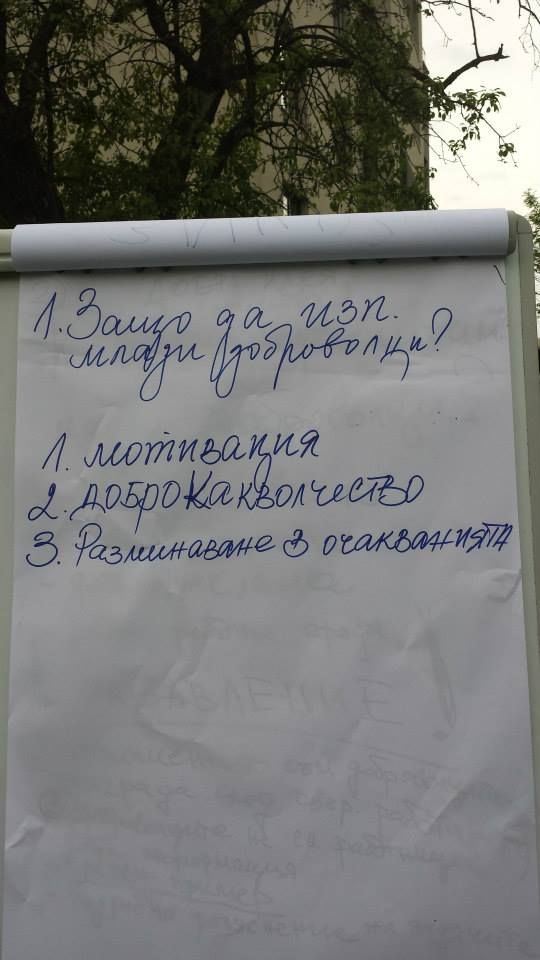 1. Защо да изп.
млади доброволци?
1. мотивация
2. ДОБРОКакВОЛЧЕСТВО
3. Разминаване в очакванията